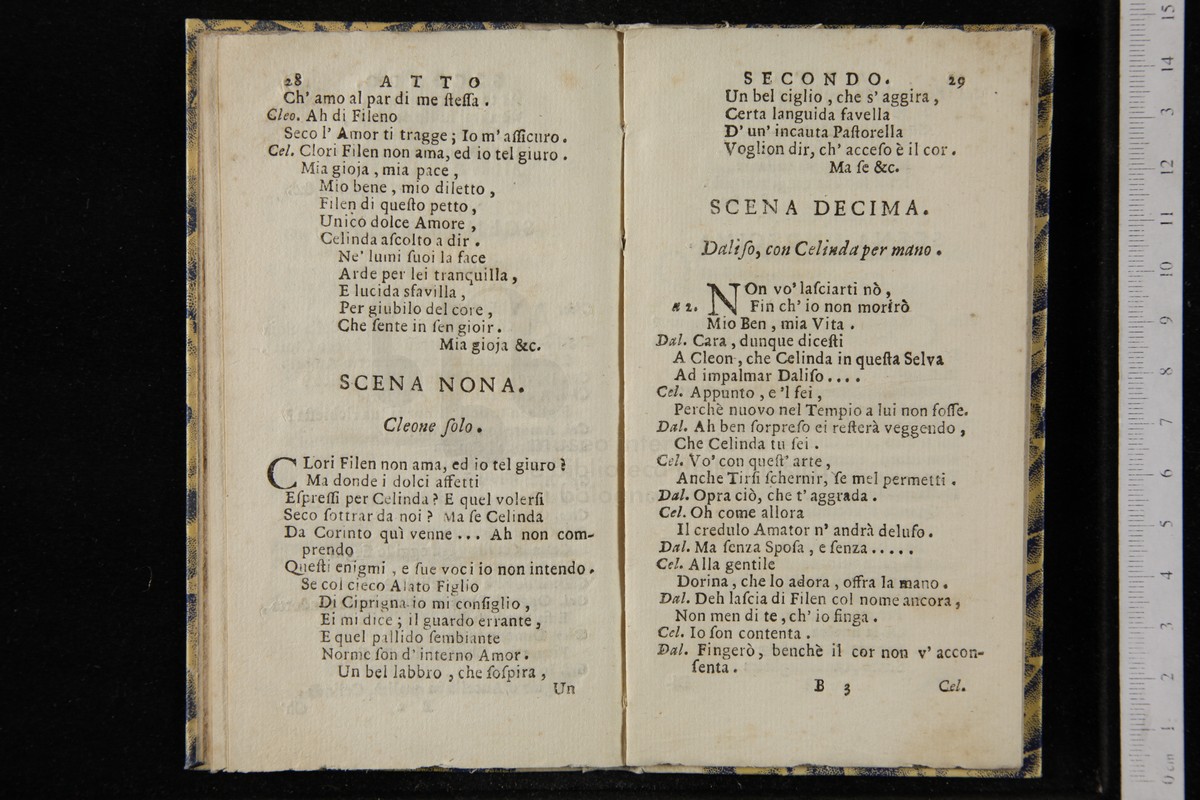 28 ATTO
Ch' amo al par di me ſteſſa .
Cleo. Ah di Fileno
Seco l' Amor ti tragge ; Io m' aſſicuro .
Cel. Clori Filen non ama, ed io tel giuro .
Mia gioja , mia pace ,
Mio bene , mio diletto ,
Filen di queſto petto ,
Unico dolce Amore ,
Celinda aſcolto a dir .
Ne' lumi ſuoi la face
Arde per lei tranquilla ,
E lucida sfavilla ,
Per giubilo del core ,
Che ſente in ſen gioir .
Mia gioja &c.
SCENA NONA.
Cleone ſolo .
CLori Filen non ama, ed io tel giuro ?
Ma donde i dolci affetti
Eſpreſſi per Celinda ? E quel volerſi
Seco ſottrar da noi ? Ma ſe Celinda
Da Corinto quì venne ... Ah non com-
prendo
Queſti enigmi , e ſue voci io non intendo .
Se col cieco Alato Figlio
Di Ciprigna io mi conſiglio ,
Ei mi dice ; il guardo errante ,
E quel pallido ſembiante
Norme ſon d' interno Amor .
Un bel labbro , che ſoſpira ,
Un
SECONDO. 29
Un bel ciglio , che s' aggira ,
Certa languida favella
D' un' incauta Paſtorella
Voglion dir, ch' acceſo è il cor .
Ma ſe &c.
SCENA DECIMA.
Daliſo, con Celinda per mano .
NOn vo' laſciarti nò ,
a 2. Fin ch' io non morirò
Mio Ben , mia Vita .
Dal. Cara , dunque diceſti
A Cleon , che Celinda in queſta Selva
Ad impalmar Daliſo ....
Cel. Appunto , e 'l fei ,
Perchè nuovo nel Tempio a lui non foſſe.
Dal. Ah ben ſorpreſo ei reſterà veggendo ,
Che Celinda tu ſei .
Cel. Vo' con queſt' arte ,
Anche Tirſi ſchernir, ſe mel permetti .
Dal. Opra ciò, che t' aggrada .
Cel. Oh come allora
Il credulo Amator n' andrà deluſo .
Dal. Ma ſenza Spoſa , e ſenza .....
Cel. Alla gentile
Dorina , che lo adora , offra la mano .
Dal. Deh laſcia di Filen col nome ancora ,
Non men di te , ch' io finga .
Cel. Io ſon contenta .
Dal. Fingerò, benchè il cor non v' accon-
ſenta .
B 3 Cel.